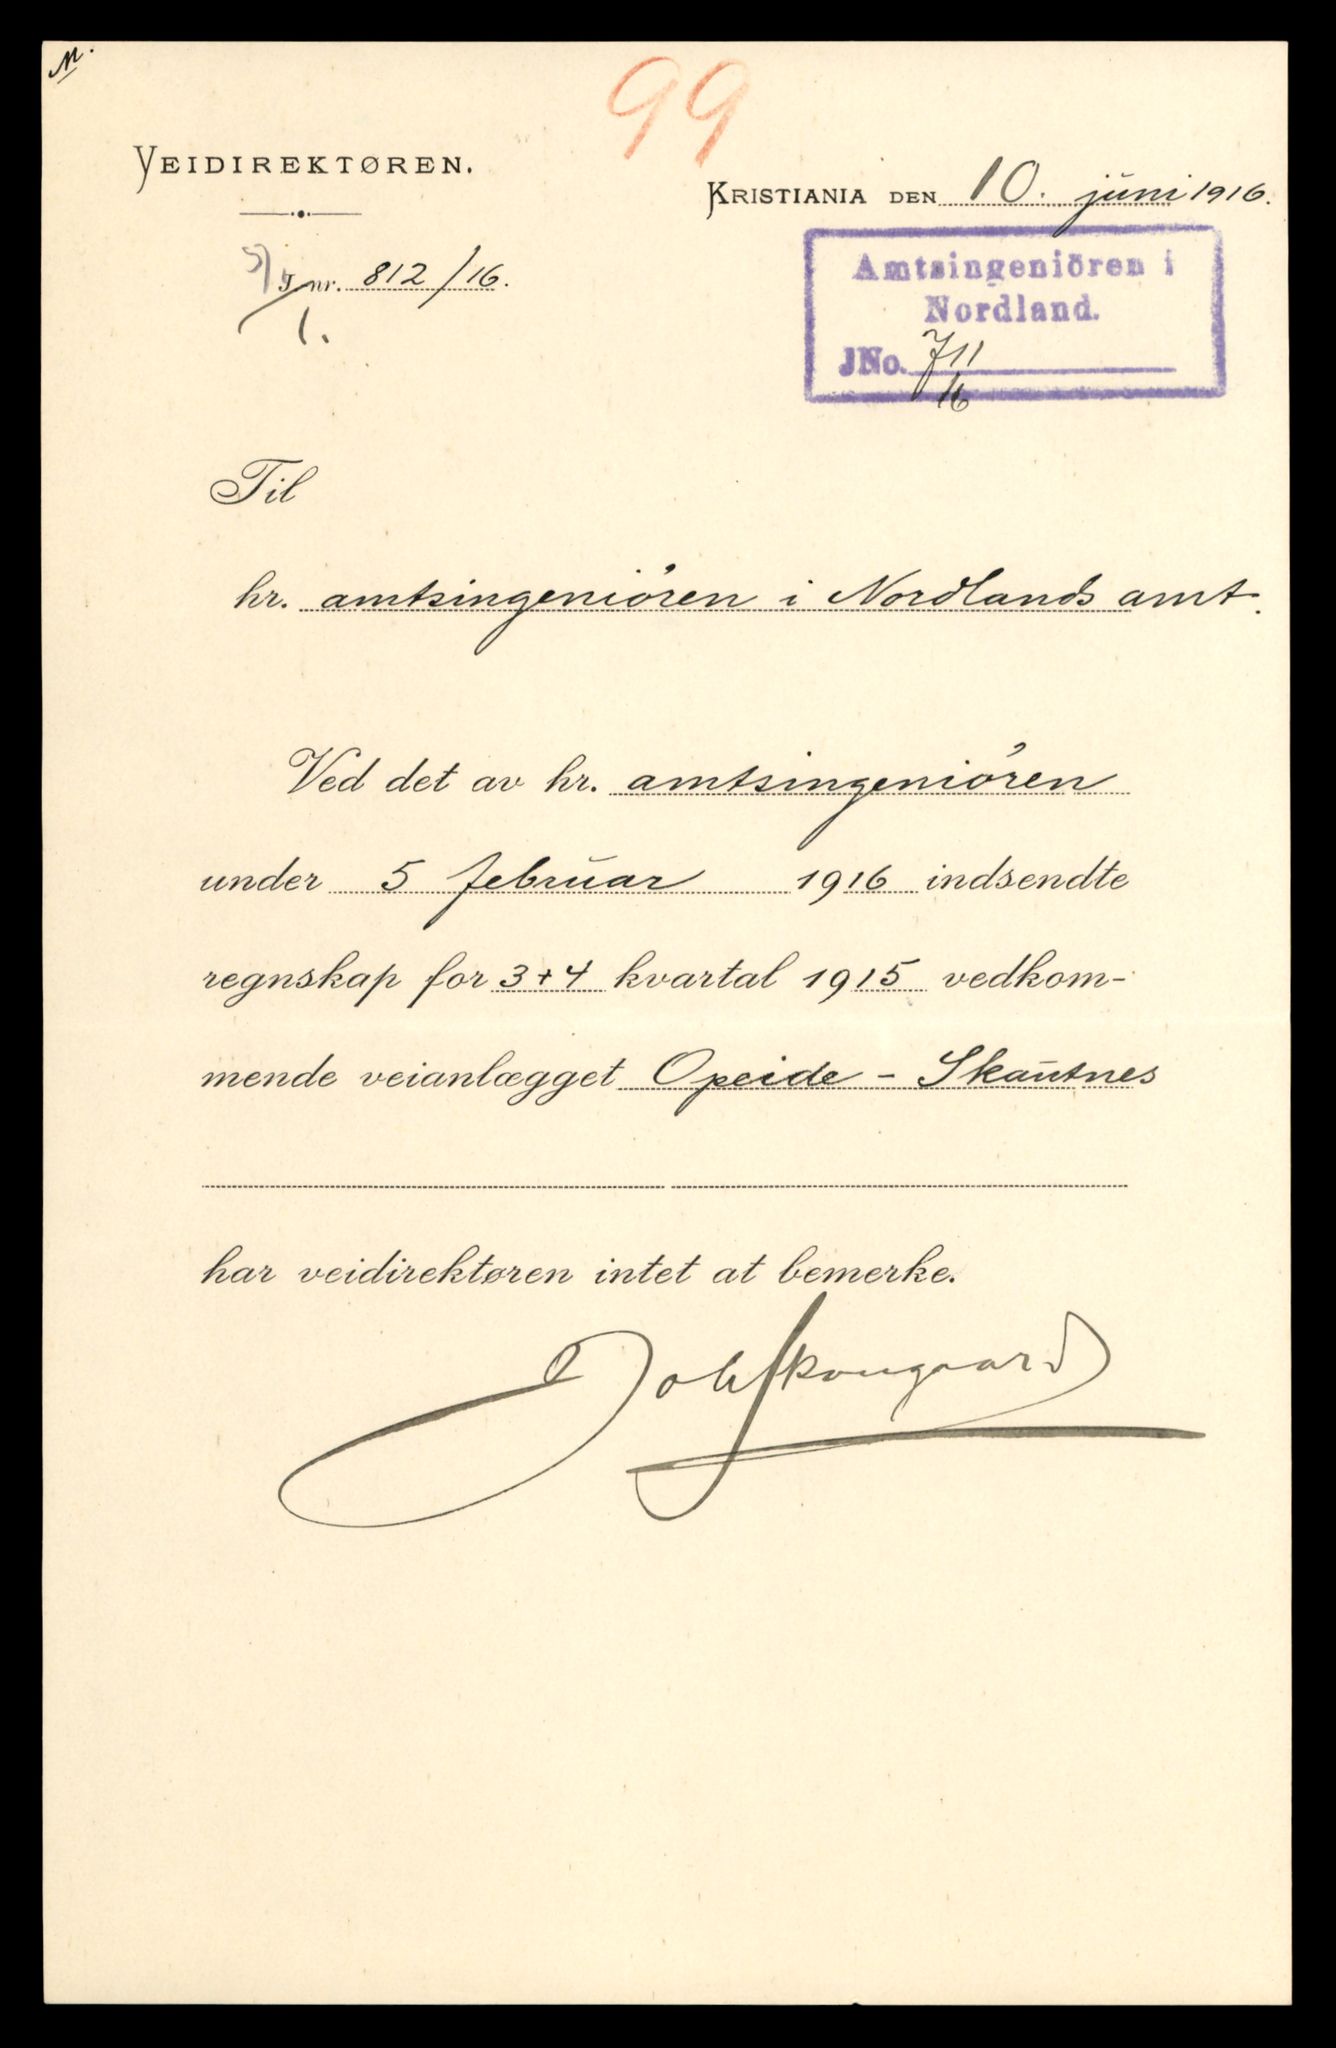 M.
99
VEIDIREKTØREN.
KRISTIANIA DEN 10. juni 1916.
J. nr. 812/16.
1.
Amtsingeniören i
Nordland.
JNo. 711
16
Til
hr. amtsingeniören i Nordlands amt.
Ved det av hr. amtsingeniören
under 5 februar 1916 indsendte
regnskap for 3+4 kvartal 1915 vedkom-
mende veianlægget Opeide - Skautnes
har veidirektøren intet at bemerke.
Joh Skougaard